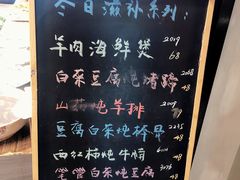 冬日滋补系列:
羊肉海鲜煲 2019 68
白菜豆腐炖猪蹄 48
山药炖羊排
豆腐白菜炖棒骨 48
西红柿炖牛腩 48
白菜炖豆腐 48